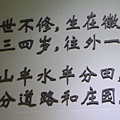 世不修，坐在徽
三四岁，往外一
山半水半分田，
分道路和庄园，